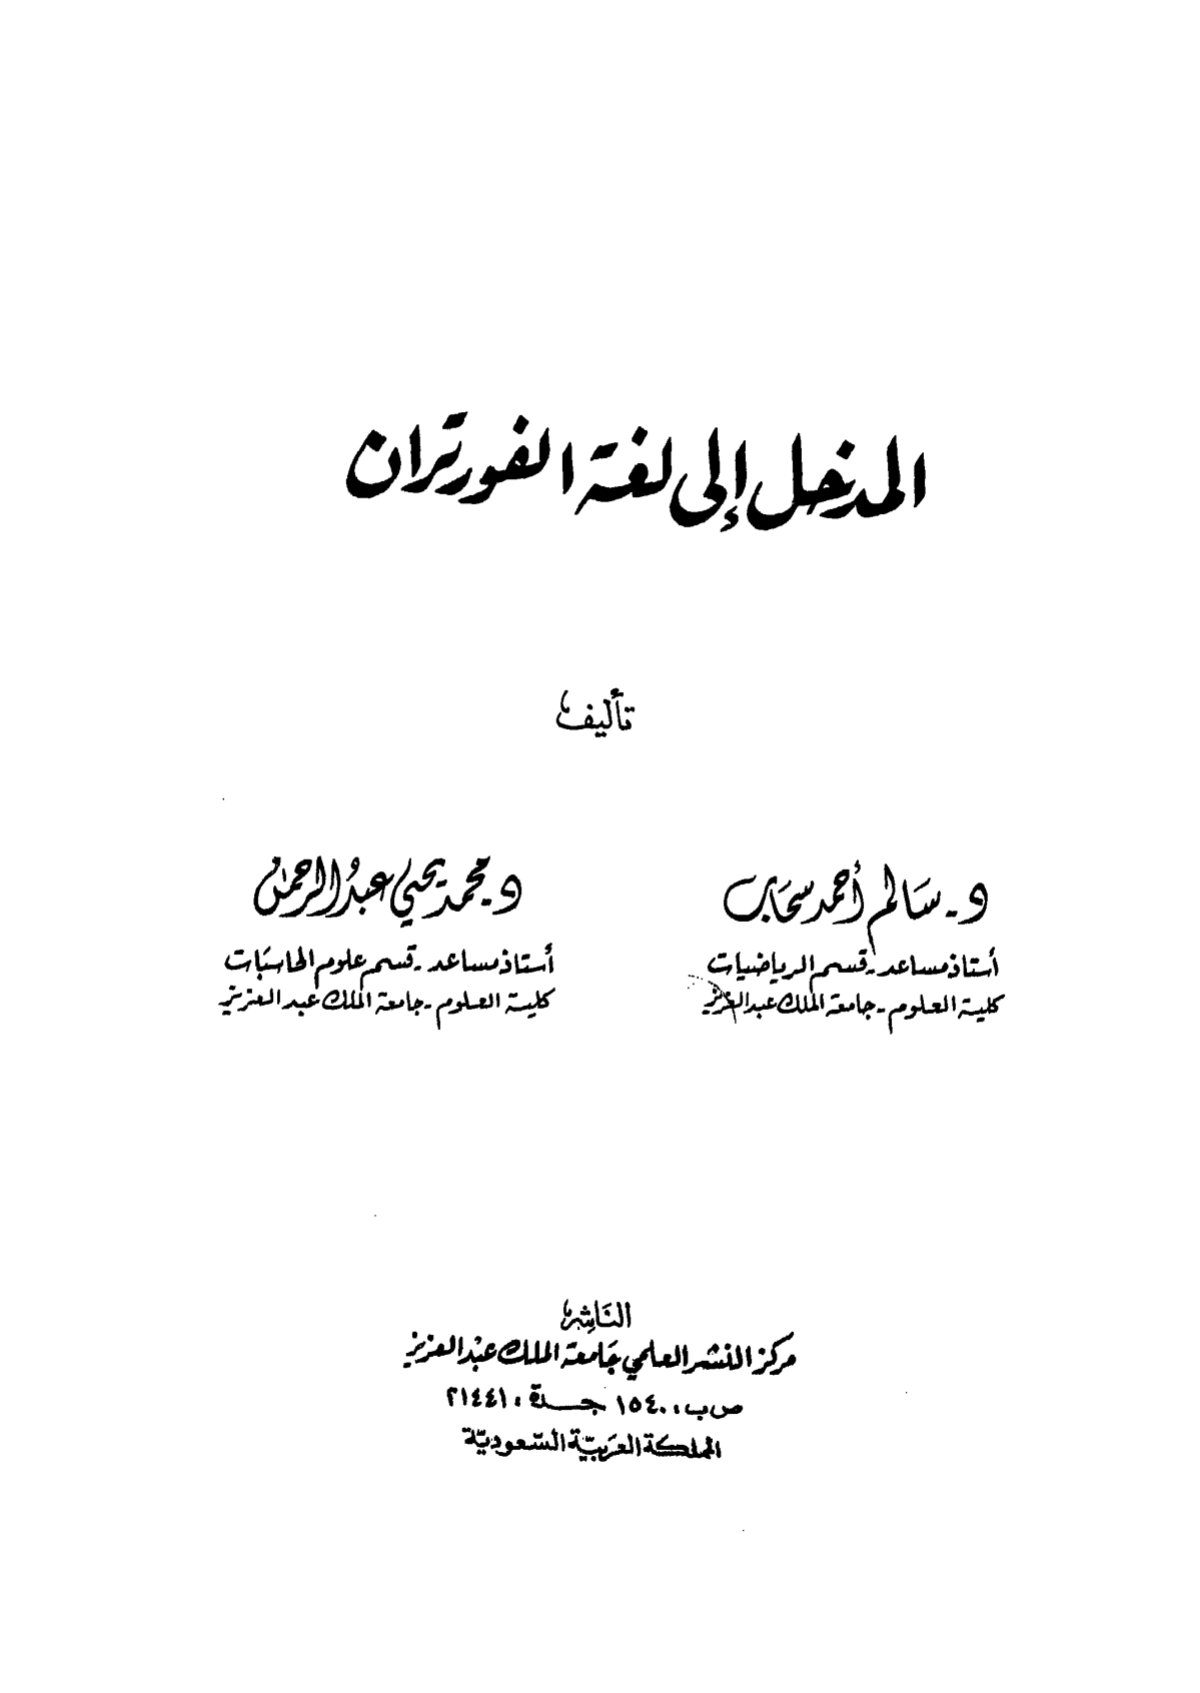 المدخل إلى لغة الفورتران
تأليف
د. سالم أحمد سحاب
أستاذ مساعد - قسم الرياضيات
كلية العلوم - جامعة الملك عبد العزيز
د. محمد يحيى عبد الرحمن
أستاذ مساعد - قسم علوم الحاسبات
كلية العلوم - جامعة الملك عبد العزيز
الناشر
مركز النشر العلمي جامعة الملك عبد العزيز
ص ب : ١٥٤٠ جدة : ٢١٤٤١
المملكة العربية السعودية